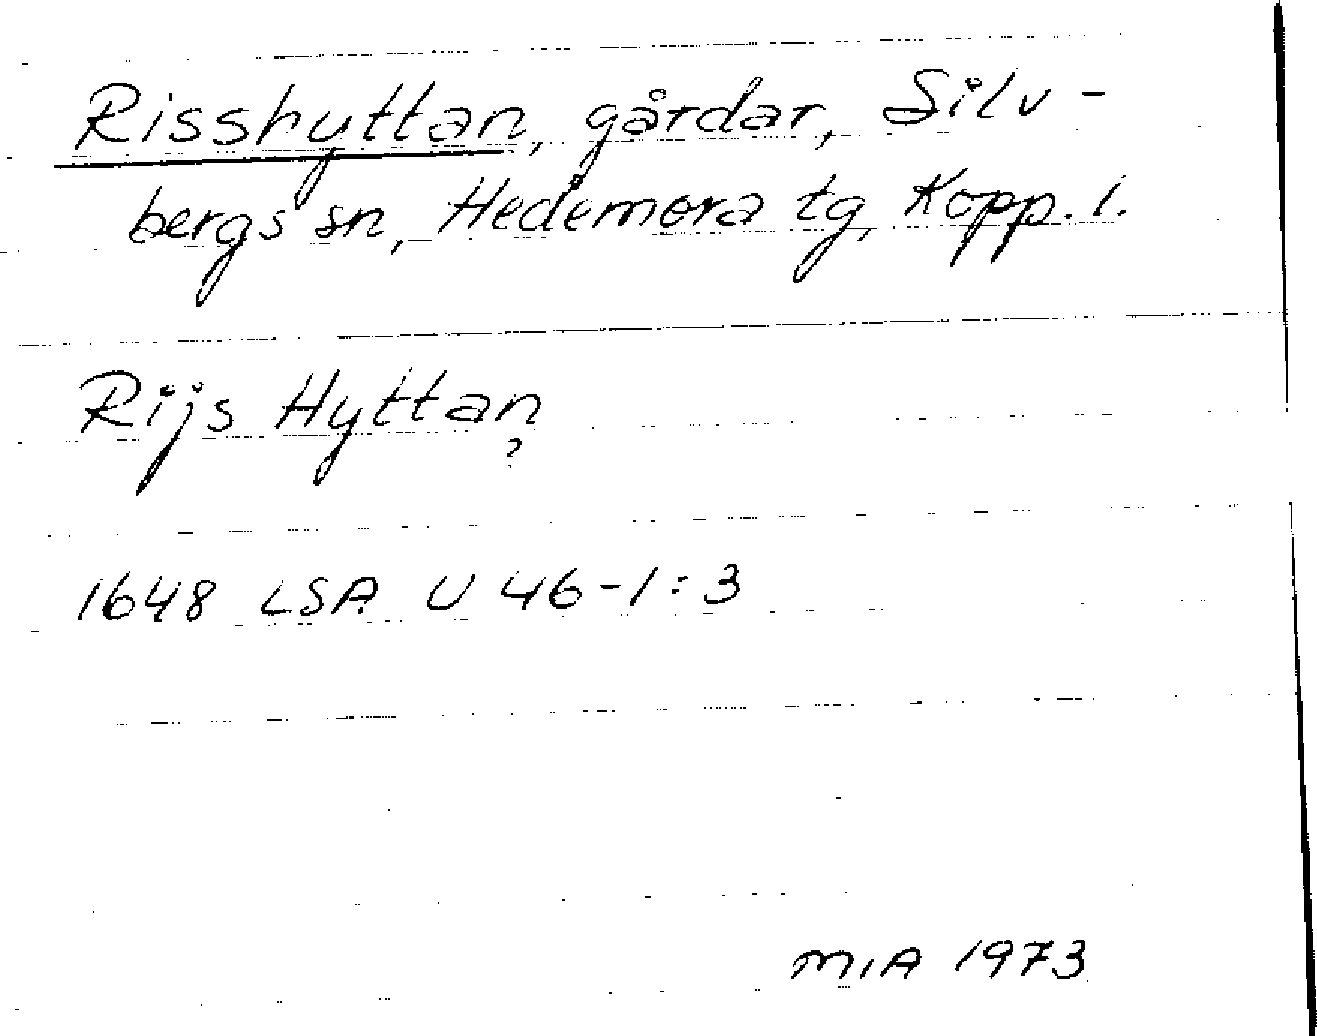 Risshyttan, gårdar, Silv-
bergs sn, Hedemora tg, Kopp. l.
Rijs Hyttan
?
1648 LSA U 46-1:3
MIA 1973